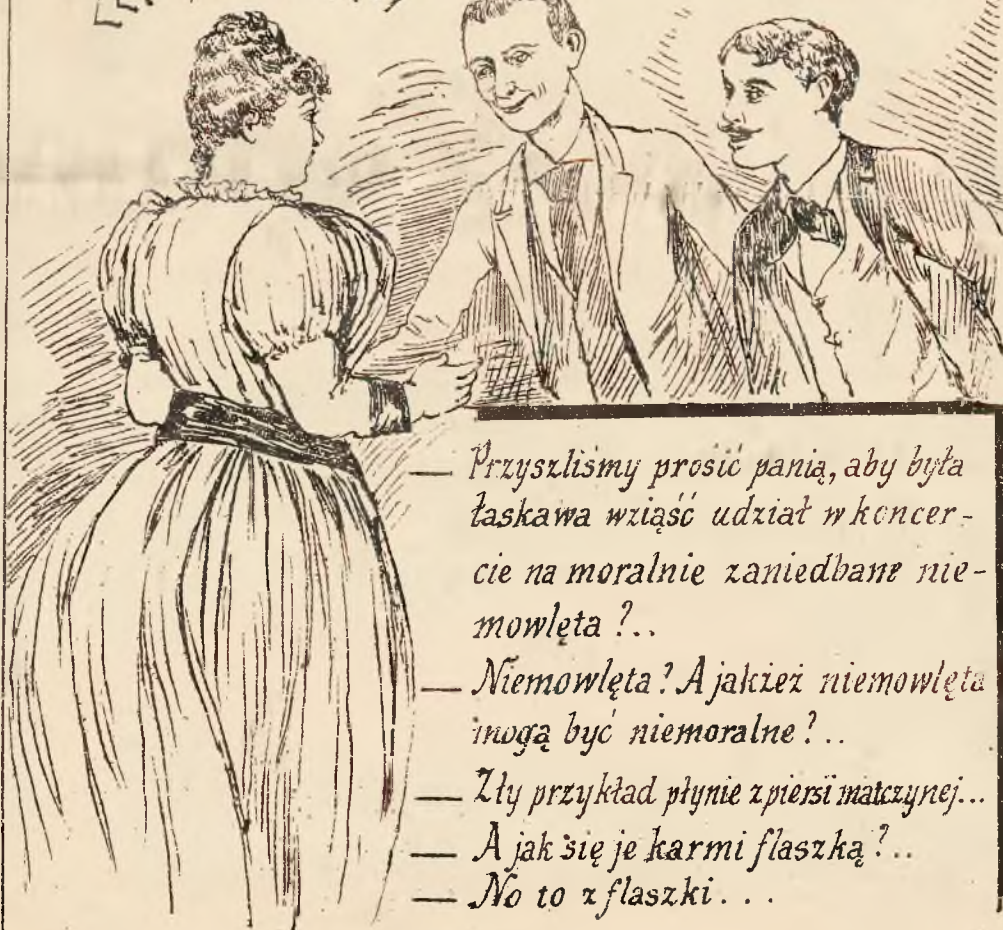 — Przyszliśmy prosić panią, aby była
łaskawa wziąść udział w koncer-
cie na moralnie zaniedbane nie-
mowlęta ?..
— Niemowlęta? A jakżeż niemowlęta
mogą być niemoralne ?..
— Zły przykład płynie z piersi matczynej...
— A jak się je karmi flaszką ?..
— No to z flaszki . . .